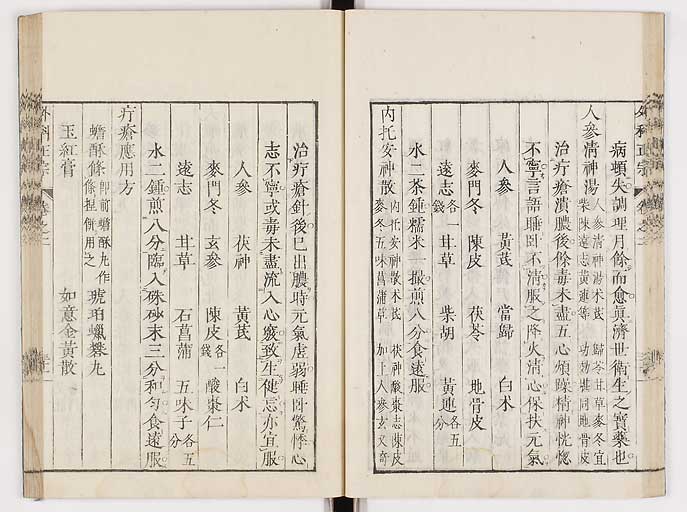 病頓失調理月餘而愈眞濟世衛生之寶藥也
人參淸神湯 人參淸神湯朮芪 歸苓甘草麥冬宜 柴陳遠志黃連等 功効甚同地骨皮
治疔瘡潰膿後餘毒未盡五心煩躁精神恍惚
不寧言語睡卧不淸服之降火淸心保扶元氣
人參 黃芪 當歸 白朮
麥門冬 陳皮 茯苓 地骨皮
遠志各一錢 甘草 柴胡 黃連各五分
水二茶鍾糯米一撮煎八分食遠服
內托安神散 內托安神散朮芪 茯神酸棗志陳皮 麥冬五味菖蒲草 加上人參玄又奇
外科正宗 卷之二
治疔瘡針後已出膿時元氣虛弱睡卧驚悸心
志不寧或毒未盡流入心竅致生健忘亦宜服
人參 茯神 黃芪 白朮
麥門冬 玄參 陳皮各一錢 酸棗仁
遠志 甘草 石菖蒲 五味子各五分
水二鍾煎八分臨入硃砂末三分和勻食遠服
疔瘡應用方
蟾酥條 卽前蟾酥丸作條揑餅用之 琥珀蠟礬丸
玉紅膏 如意金黃散
外科正宗 卷之二